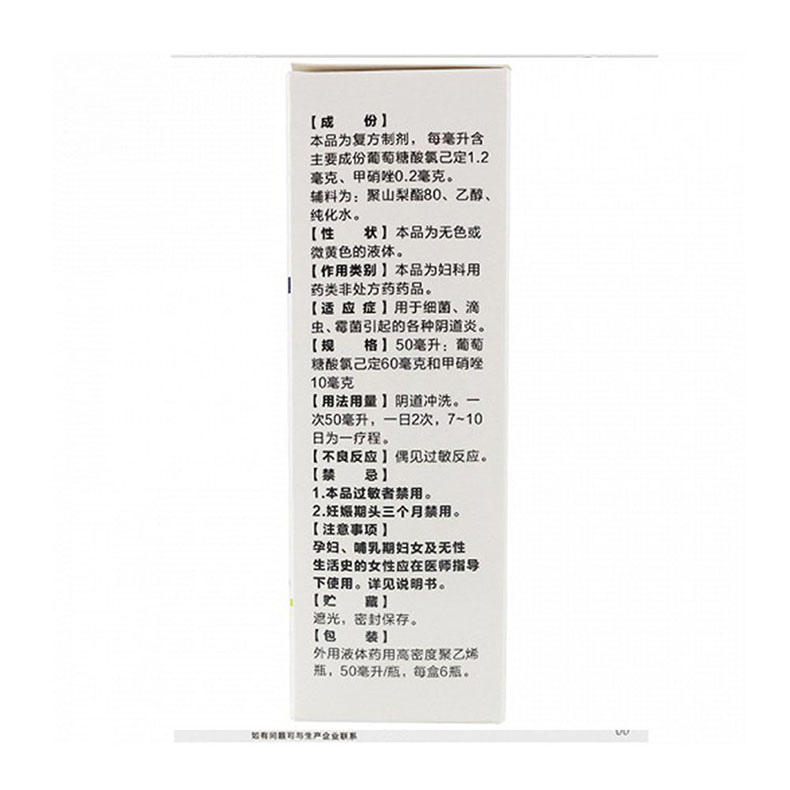 【成 份】
本品为复方制剂，每毫升含
主要成份葡萄糖酸氯己定1.2
毫克、甲硝唑0.2毫克。
辅料为：聚山梨酯80、乙醇、
纯化水。
【性 状】本品为无色或
微黄色的液体。
【作用类别】本品为妇科用
药类非处方药药品。
【适应症】用于细菌、滴
虫、霉菌引起的各种阴道炎。
【规 格】50毫升：葡萄
糖酸氯己定60毫克和甲硝唑
10毫克
【用法用量】阴道冲洗。一
次50毫升，一日2次，7~10
日为一疗程。
【不良反应】偶见过敏反应。
【禁 忌】
1.本品过敏者禁用。
2.妊娠期头三个月禁用。
【注意事项】
孕妇、哺乳期妇女及无性
生活史的女性应在医师指导
下使用。详见说明书。
【贮 藏】
遮光，密封保存。
【包 装】
外用液体药用高密度聚乙烯
瓶，50毫升/瓶，每盒6瓶。
如有问题可与生产企业联系